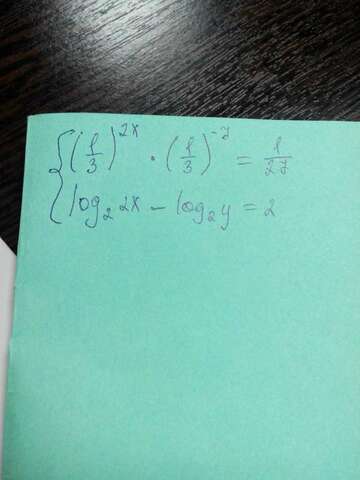 (1/3)^2x · (1/3)^-y = 1/27
log₂ 2x - log₂ y = 2